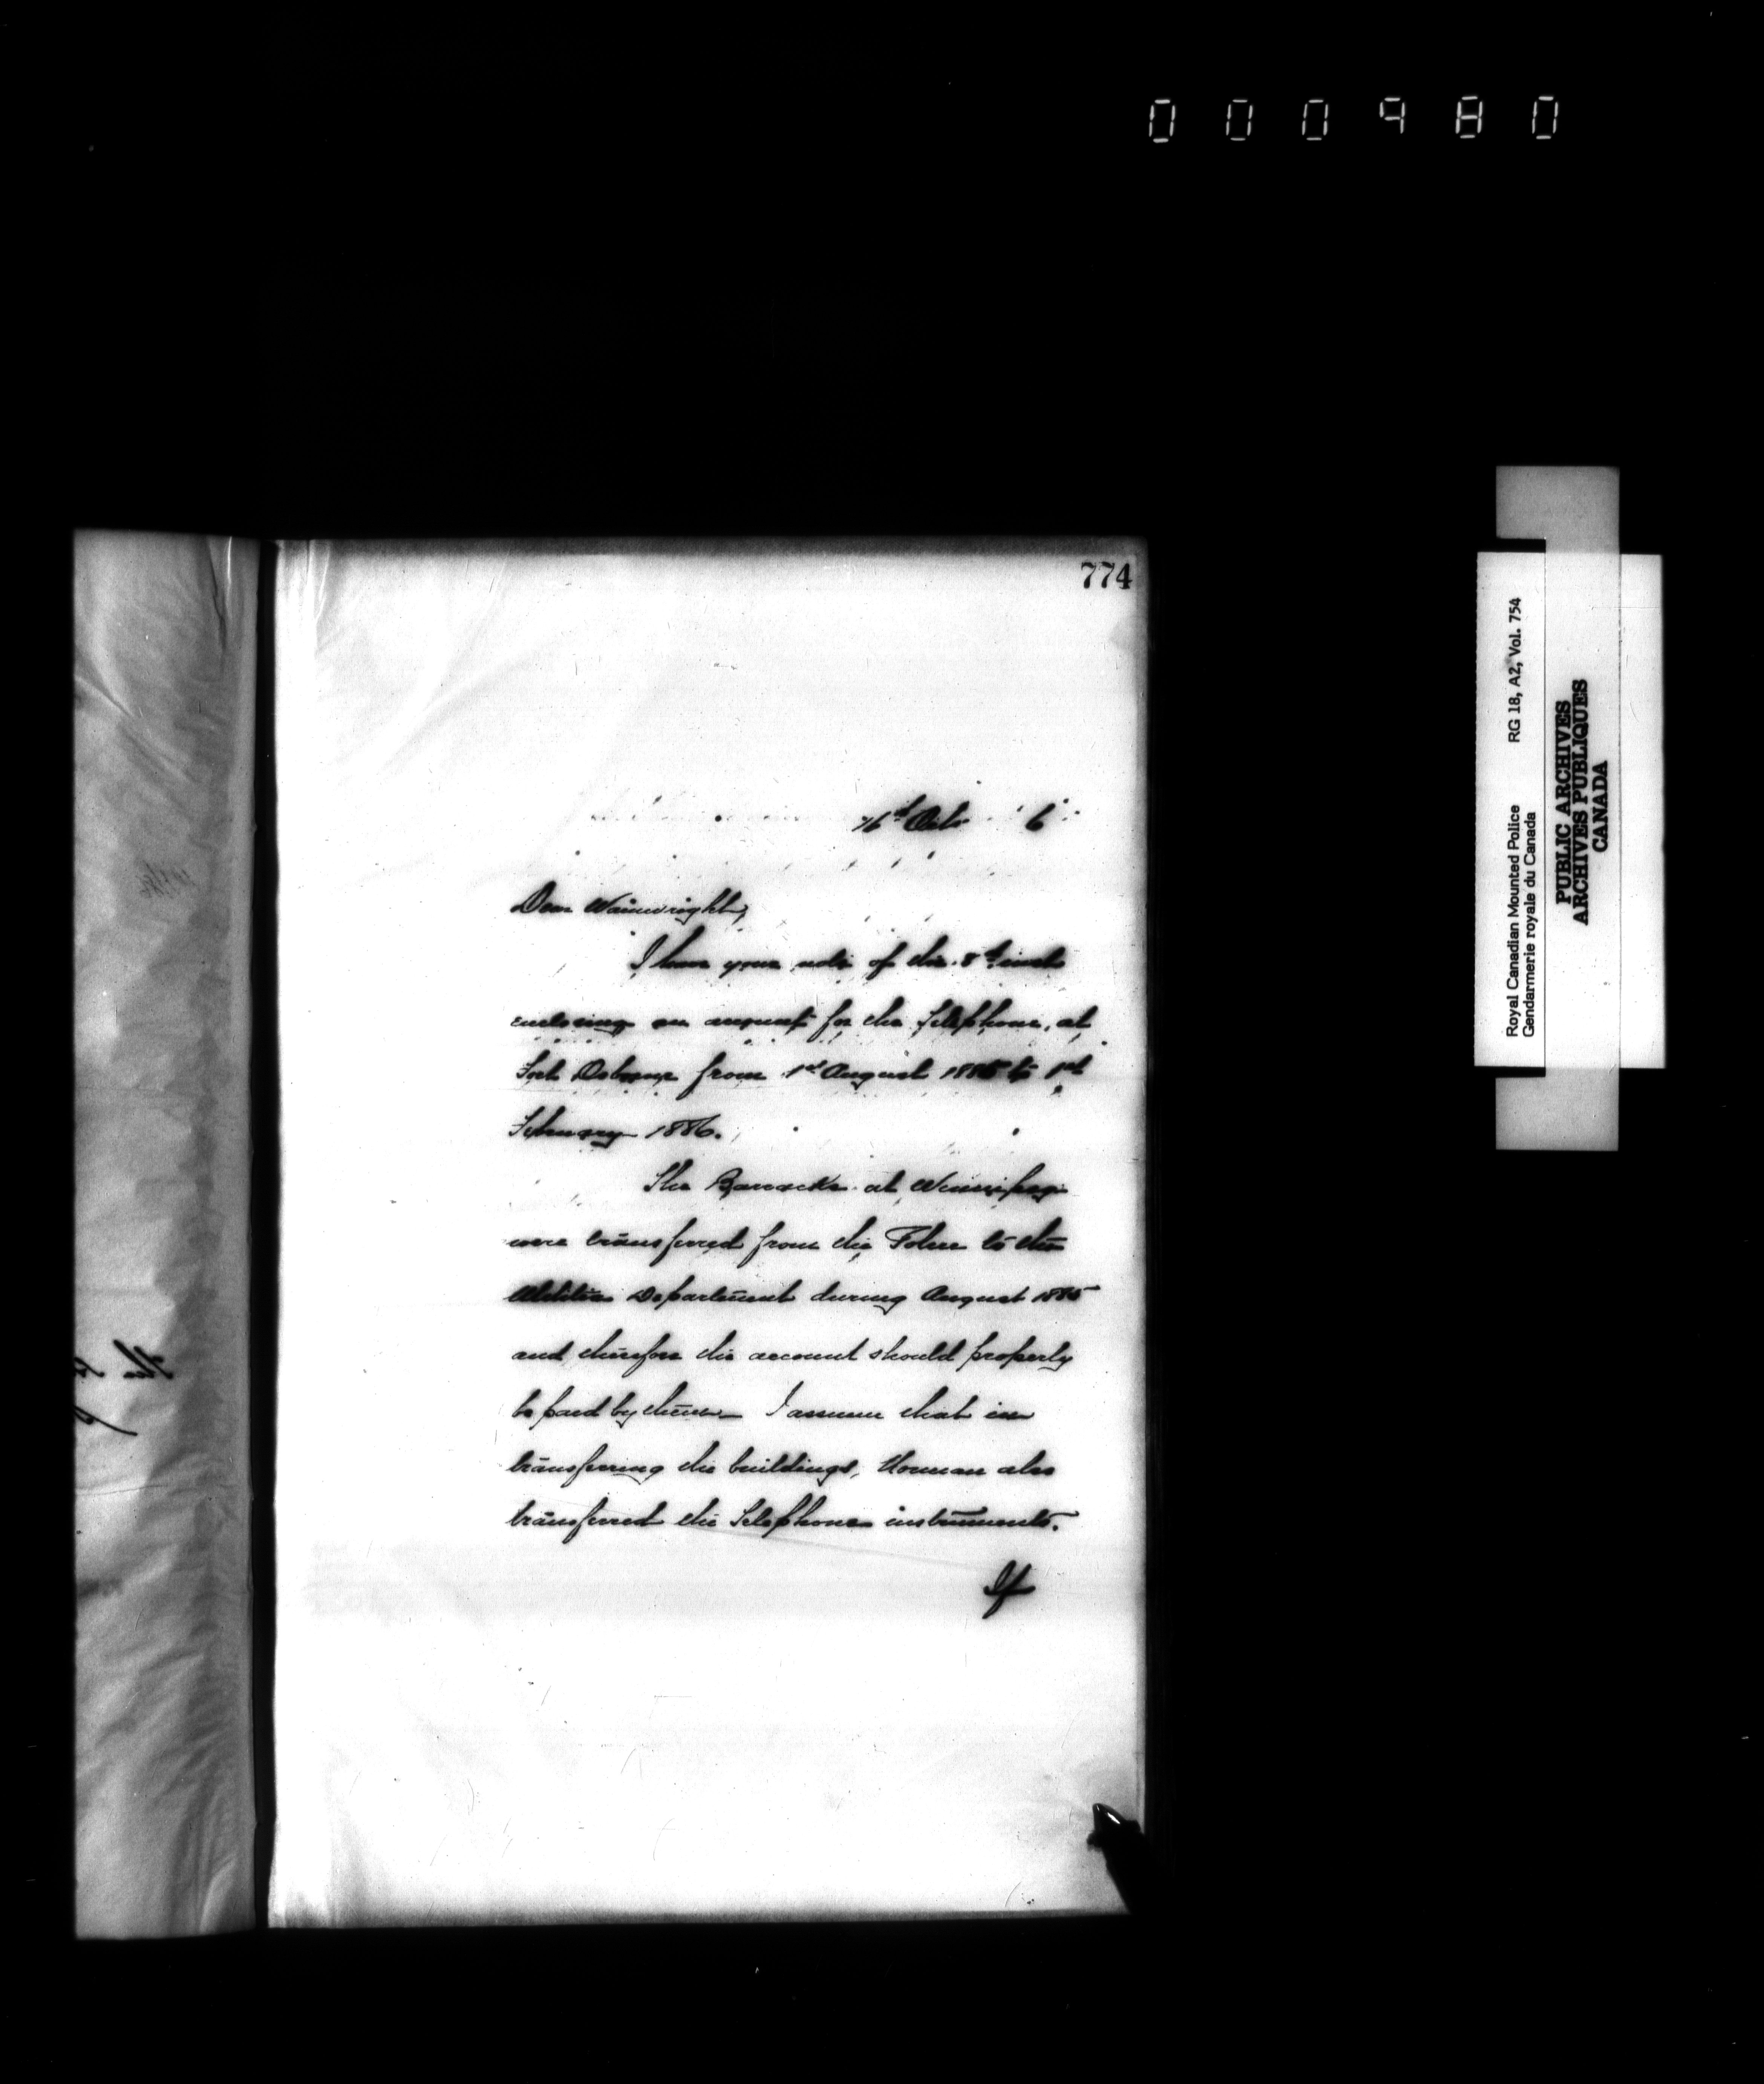 000980
774
16th Oct 6
Dear Wainwright,
I have your note of the 8th inst
enclosing an account for the Telephone, at
Fort Osborne from 1st August 1885 to 1st
February 1886.
The Barracks at Winnipeg
were transferred from the Police to the
Militia Department during August 1885
and therefore the account should properly
be paid by them. I assume that in
transferring the buildings, Homan also
transferred the Telephone instruments.
If
Royal Canadian Mounted Police RG 18, A2, Vol. 754
Gendarmerie royale du Canada
PUBLIC ARCHIVES
ARCHIVES PUBLIQUES
CANADA